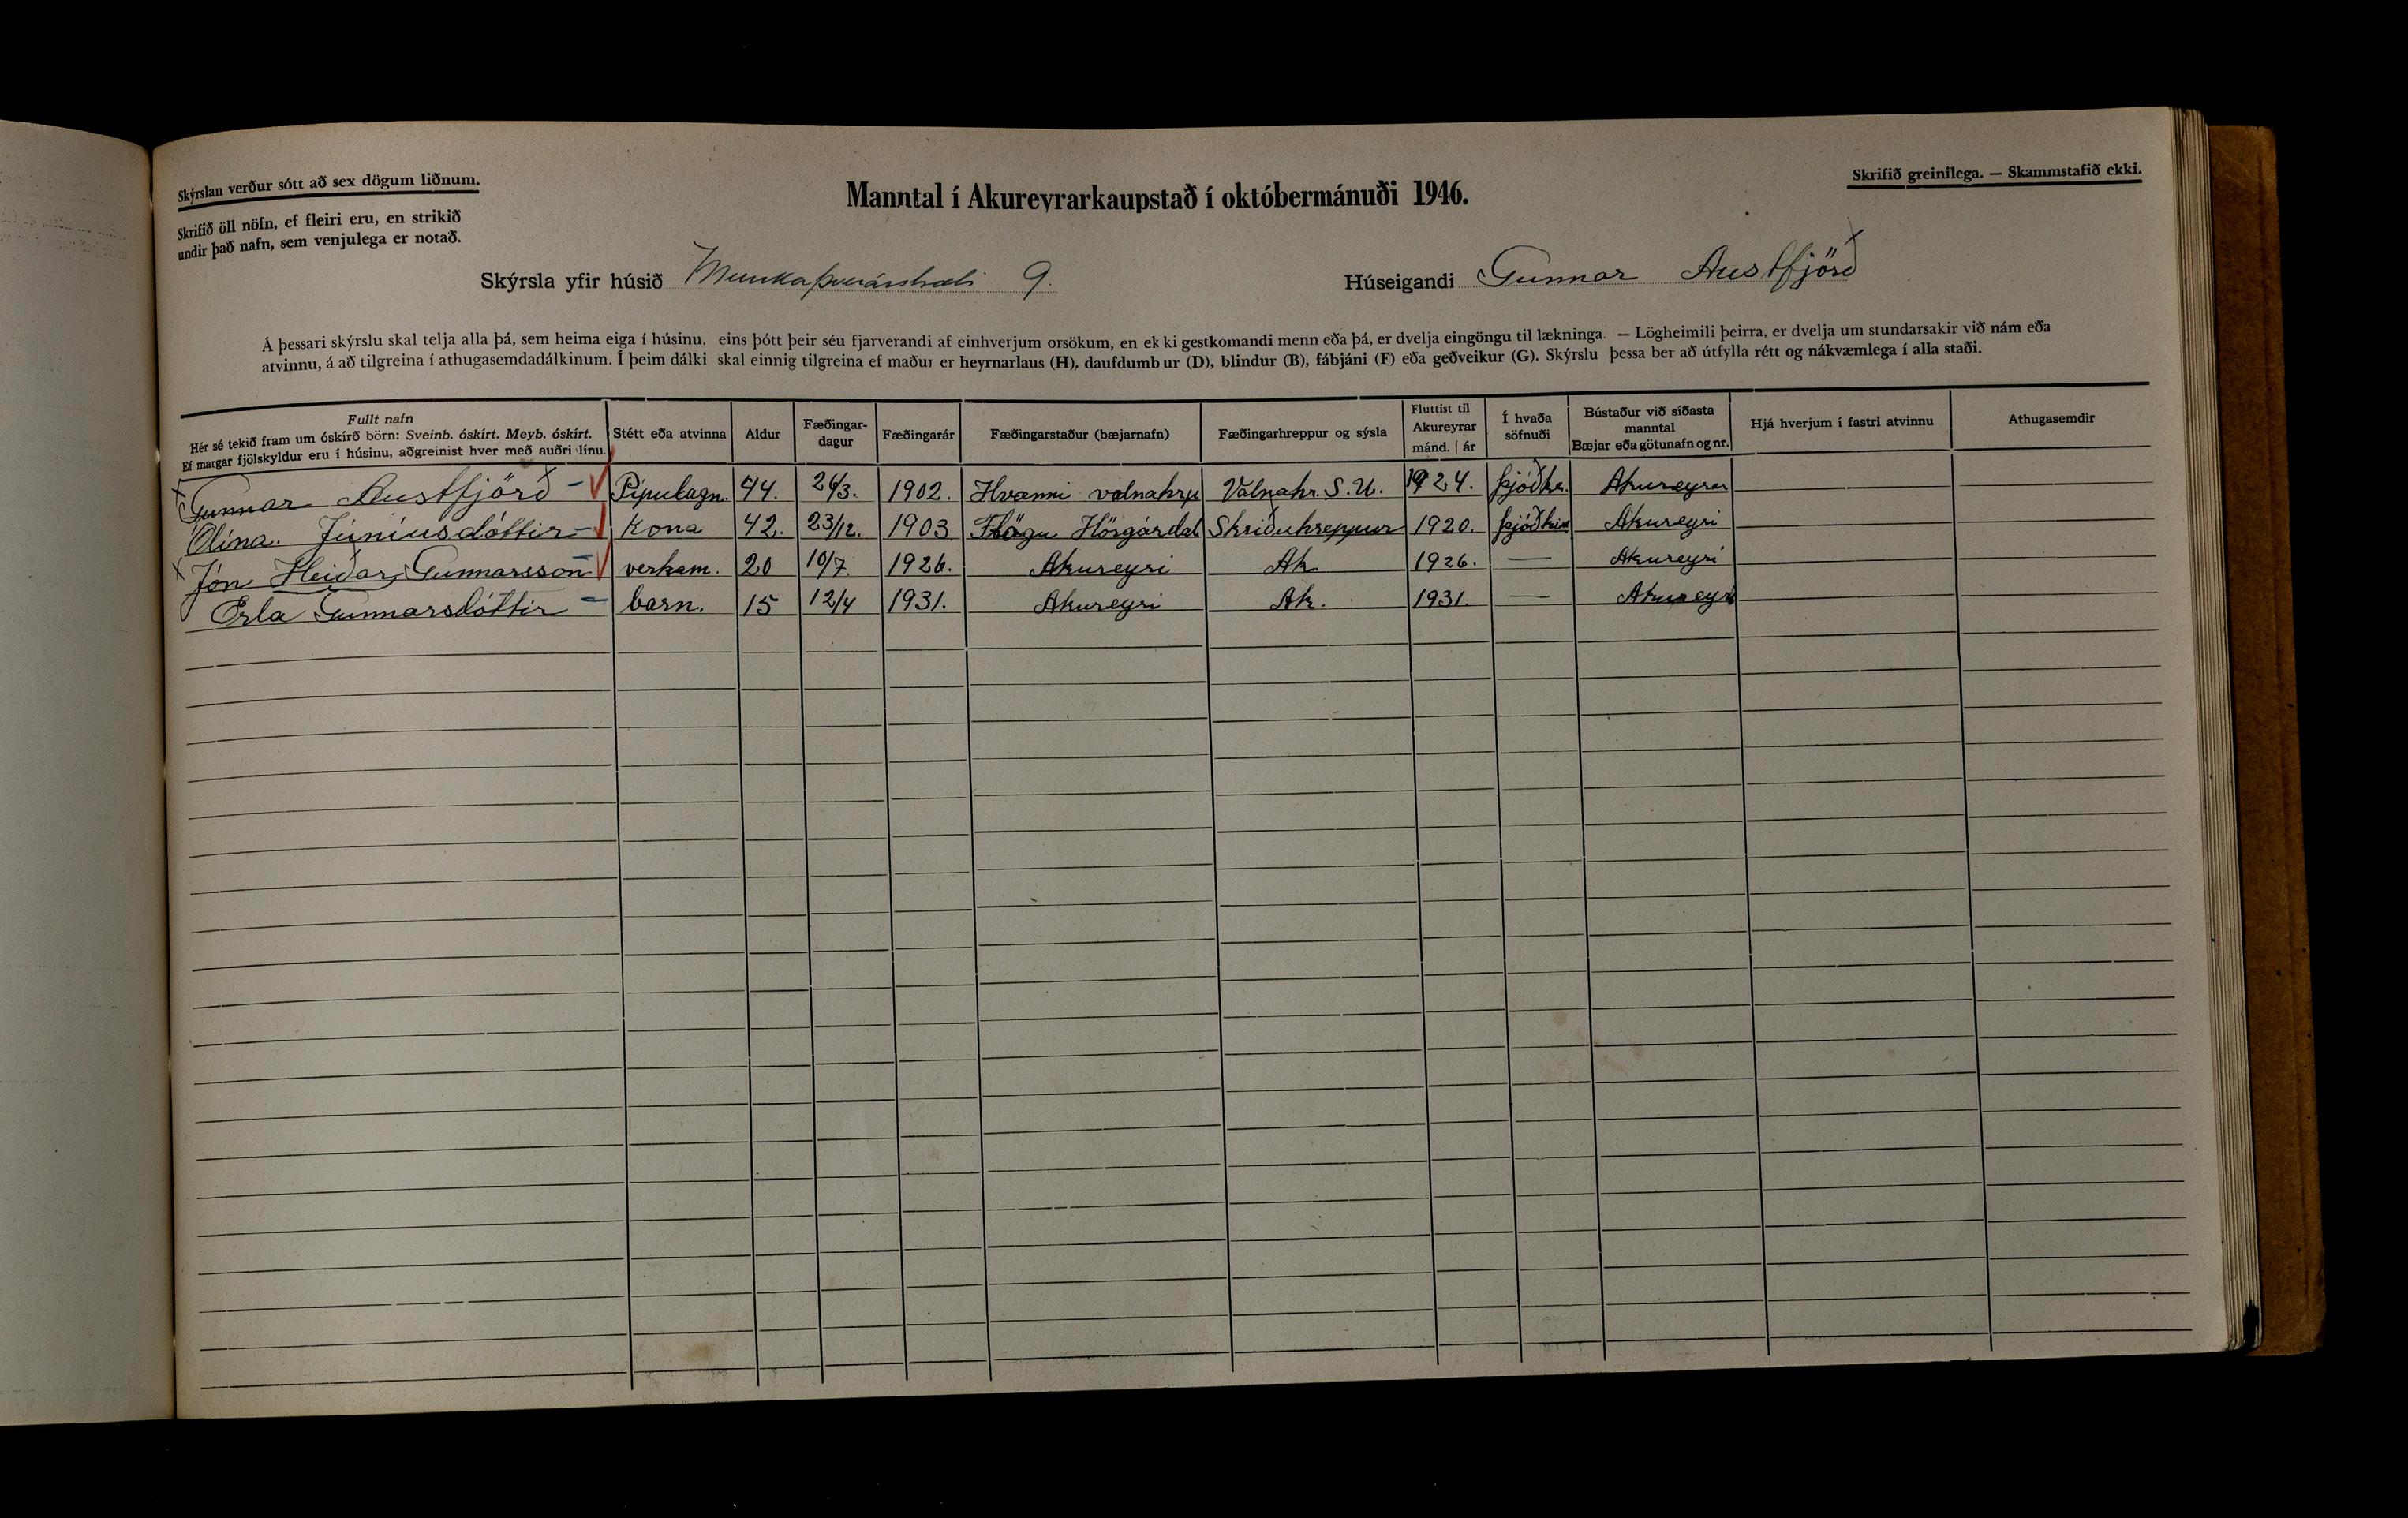 Skýrslan verður sótt að sex dögum liðnum.
Skrifið öll nöfn, ef fleiri eru, en strikið
undir það nafn, sem venjulega er notað.
Manntal í Akureyrarkaupstað í októbermánuði 1946.
Skrifið greinilega. — Skammstafið ekki.
Skýrsla yfir húsið Munkaþverárstræti 9.
Húseigandi Gunnar Austfjörð
Á þessari skýrslu skal telja alla þá, sem heima eiga í húsinu, eins þótt þeir séu fjarverandi af einhverjum orsökum, en ekki gestkomandi menn eða þá, er dvelja eingöngu til lækninga. — Lögheimili þeirra, er dvelja um stundarsakir við nám eða
atvinnu, á að tilgreina í athugasemdadálkinum. Í þeim dálki skal einnig tilgreina ef maður er heyrnarlaus (H), daufdumbur (D), blindur (B), fábjáni (F) eða geðveikur (G). Skýrslu þessa ber að útfylla rétt og nákvæmlega í alla staði.
Fullt nafn
Hér sé tekið fram um óskírð börn: Sveinb. óskírt. Meyb. óskírt.
Ef margar fjölskyldur eru í húsinu, aðgreinist hver með auðri línu.
Stétt eða atvinna
Aldur
Fæðingar-
dagur
Fæðingarár
Fæðingarstaður (bæjarnafn)
Fæðingarhreppur og sýsla
Fluttist til
Akureyrar
mánd. | ár
Í hvaða
söfnuði
Bústaður við síðasta
manntal
Bæjar eða götunafn og nr.
Hjá hverjum í fastri atvinnu
Athugasemdir
Gunnar Austfjörð Pípulagn. 44. 1902. Hvammi Valnahr. S.U. 1924. þjóðk. Akureyrar
Ólína Júníusdóttir Kona 42. 23/12. 1903 Flögu Hörgárdal Skriðuhreppur 1920. Akureyri
Jón Heiðar Gunnarsson verkam. 20 10/7. 1926. Akureyri Ak. 1926. — Akureyri
Erla Gunnarsdóttir barn. 15 12/4 1931. Akureyri Ak. 1931. — Akureyri